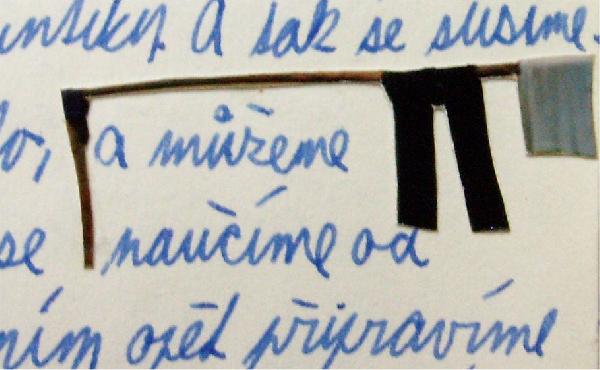 A tak se sušíme.
a můžeme
se naučíme od
ním opět připravíme